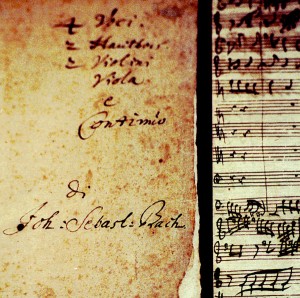 4 Voci.
2 Hautbois
2 Violini
Viola
e
Continuo
di
Joh: Sebast: Bach